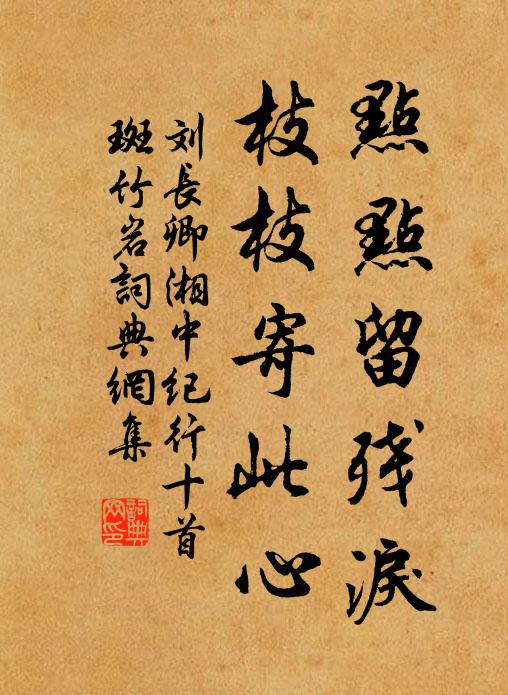 點點留残淚
枝枝寄此心
刘長卿湘中纪行十首
斑竹岩詞典網集
詞典网印